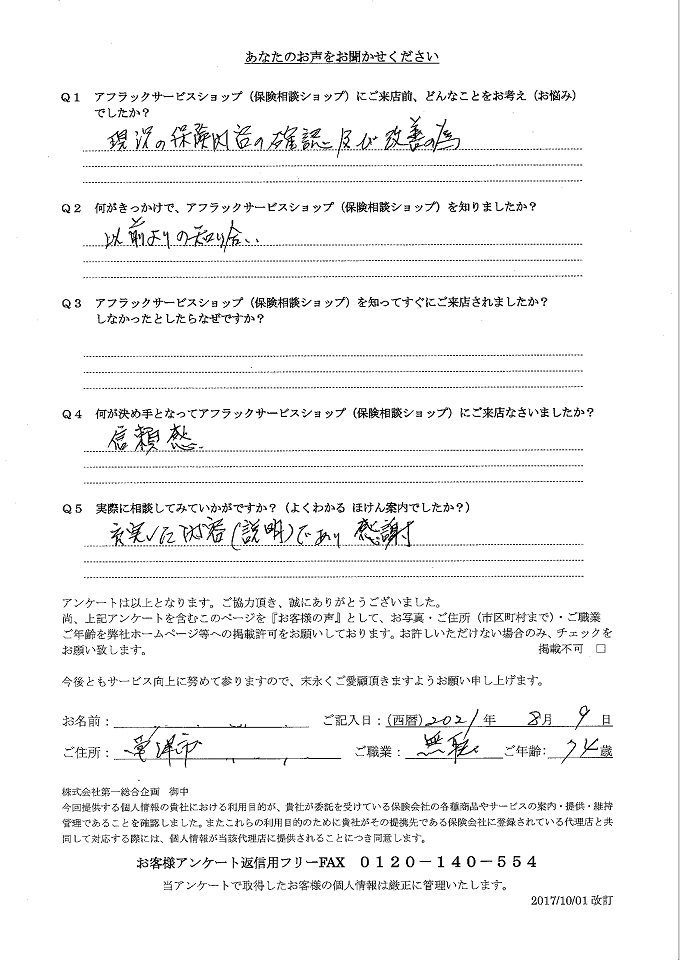 あなたのお声をお聞かせください
Q1 アフラックサービスショップ（保険相談ショップ）にご来店前、どんなことをお考え（お悩み）
でしたか？
現況の保険内容の確認と及び改善の為
Q2 何がきっかけで、アフラックサービスショップ（保険相談ショップ）を知りましたか？
以前よりの知り合い
Q3 アフラックサービスショップ（保険相談ショップ）を知ってすぐにご来店されましたか？
しなかったとしたらなぜですか？
Q4 何が決め手となってアフラックサービスショップ（保険相談ショップ）にご来店なさいましたか？
信頼感
Q5 実際に相談してみていかがですか？（よくわかる ほけん案内でしたか？）
充実した内容（説明）であり 感謝
アンケートは以上となります。ご協力頂き、誠にありがとうございました。
尚、上記アンケートを含むこのページを『お客様の声』として、お写真・ご住所（市区町村まで）・ご職業
ご年齢を弊社ホームページ等への掲載許可をお願いしております。お許しいただけない場合のみ、チェックを
お願い致します。 掲載不可 □
今後ともサービス向上に努めて参りますので、末永くご愛顧頂きますようお願い申し上げます。
お名前： ご記入日：（西暦）2021年 8月 9日
ご住所： 市 ご職業：無職 ご年齢：74歳
株式会社第一総合企画 御中
今回提供する個人情報の貴社における利用目的が、貴社が委託を受けている保険会社の各種商品やサービスの案内・提供・維持
管理であることを確認しました。またこれらの利用目的のために貴社がその提携先である保険会社に登録されている代理店と共
同して対応する際には、個人情報が当該代理店に提供されることにつき同意します。
お客様アンケート返信用フリーFAX 0120－140－554
当アンケートで取得したお客様の個人情報は厳正に管理いたします。
2017/10/01 改訂